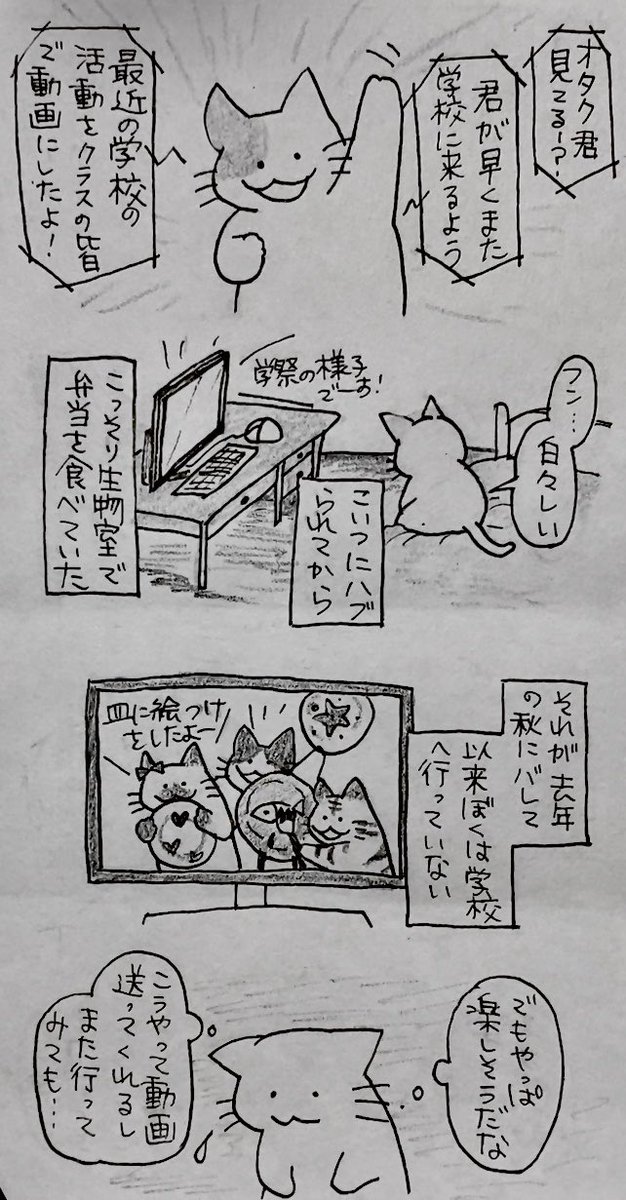 オタク君
見てるー？
君が早くまた
学校に来るよう
最近の学校の
活動をクラスの皆
で動画にしたよ！
フン…
白々しい
学祭の様子
でーす！
こいつにハブ
られてから
こっそり生物室で
弁当を食べていた
それが去年
の秋にバレて
以来ぼくは学校
へ行っていない
皿に絵つけ
をしたよー
でもやっぱ
楽しそうだな
こうやって動画
送ってくれるし
また行って
みても…